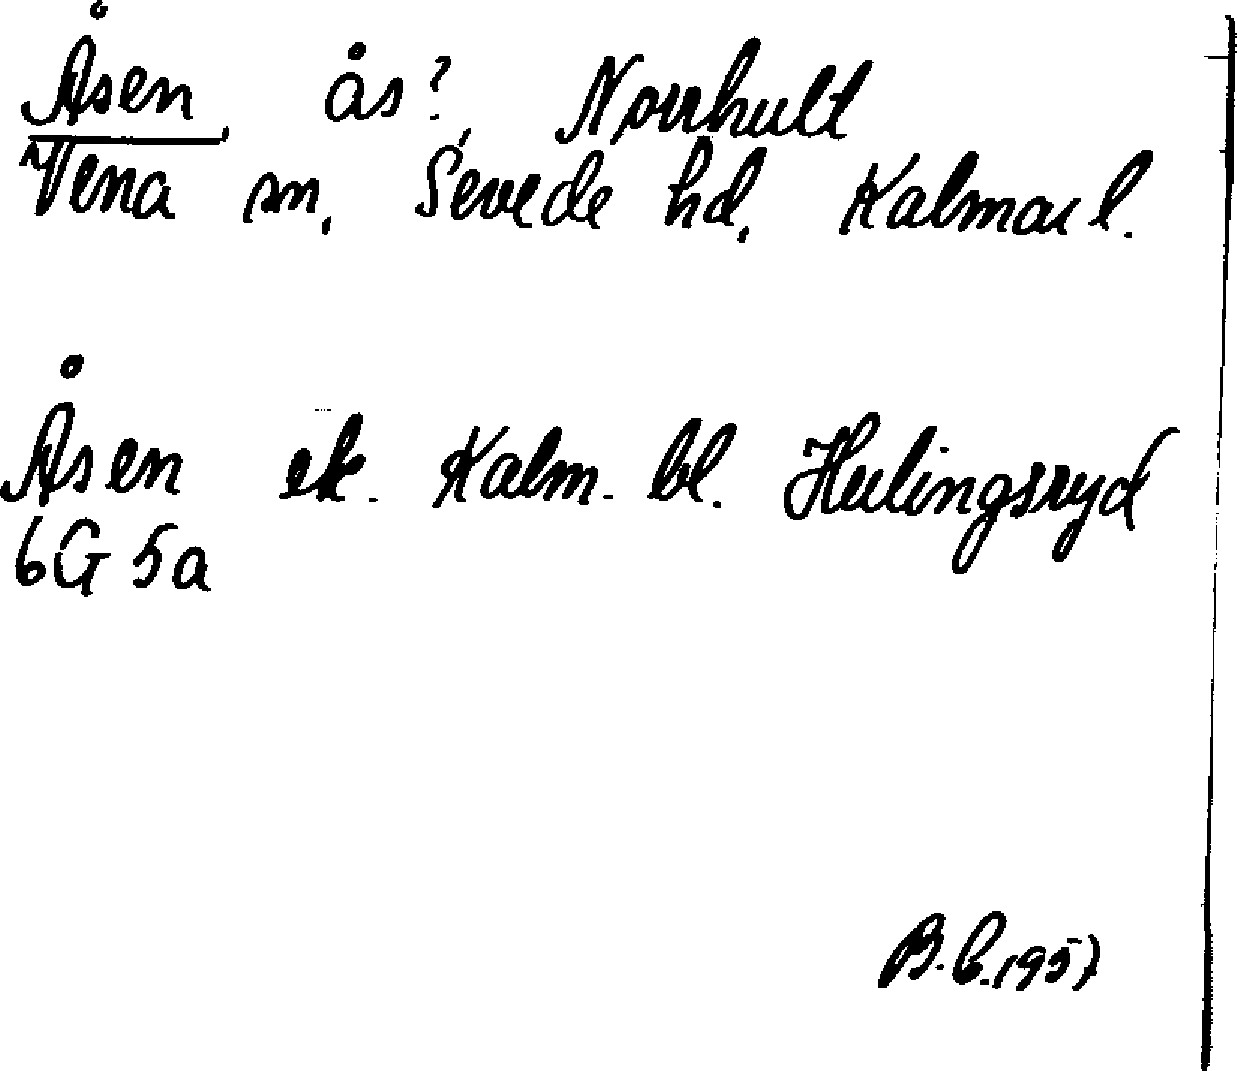 Åsen, ås?, Norrhult
Vena sn, Sevede hd, Kalmar l.
Åsen ek. Kalm. bl. Hulingsryd
6G 5a
B.C. 1957